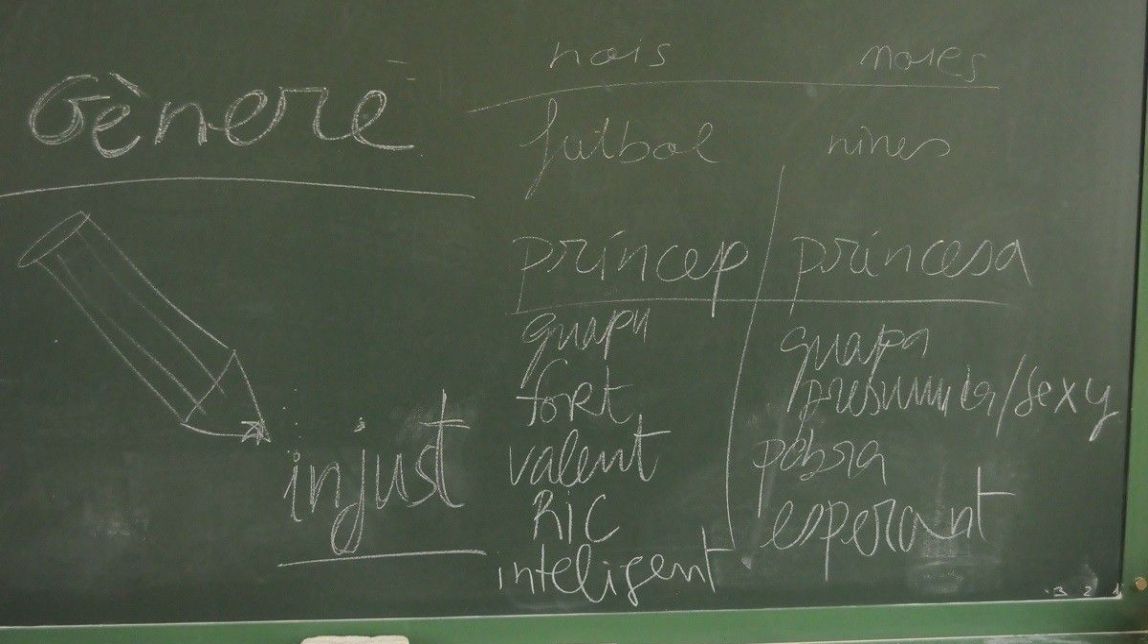 Gènere
nois noies
futbol nines
príncep princesa
guapu guapa
fort presumida/sexy
valent pobra
Ric esperant
inteligent
injust
3 2 1